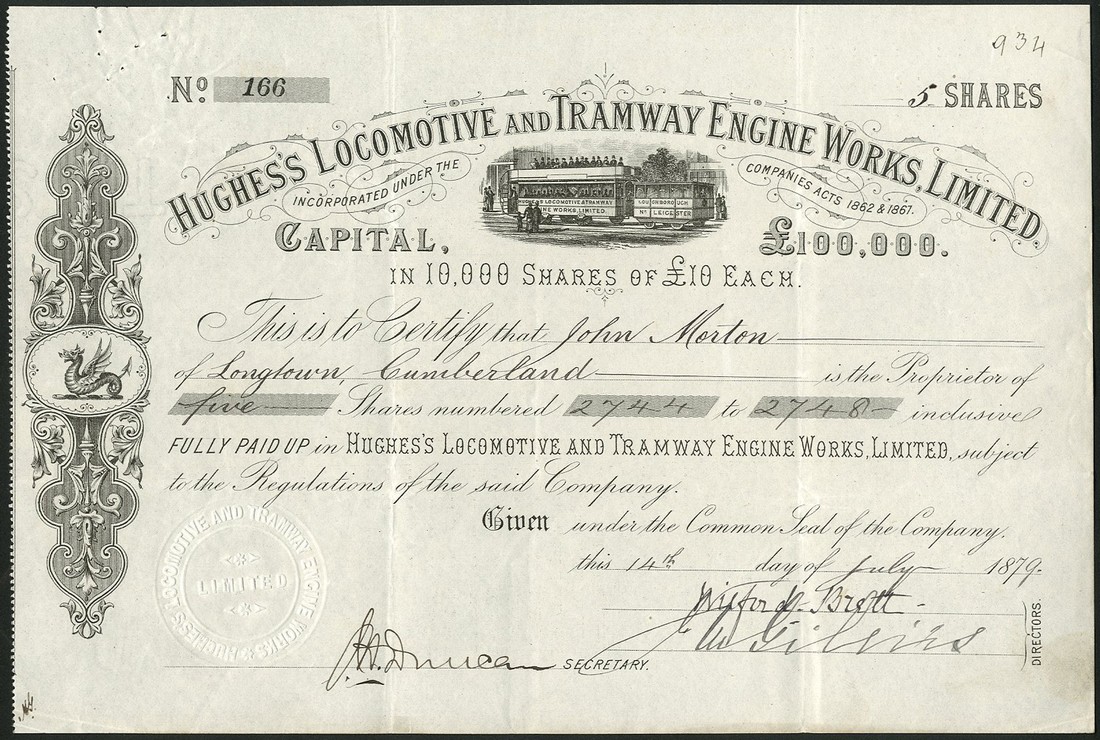 934
No. 166
5 SHARES
HUGHES'S LOCOMOTIVE AND TRAMWAY ENGINE WORKS, LIMITED.
INCORPORATED UNDER THE COMPANIES ACTS 1862 & 1867.
HUGHES'S LOCOMOTIVE & TRAMWAY
ENGINE WORKS, LIMITED.
LOUGHBOROUGH
NR LEICESTER
CAPITAL, £100,000.
IN 10,000 SHARES OF £10 EACH.
This is to Certify that John Morton
of Longtown, Cumberland is the Proprietor of
five Shares numbered 2744 to 2748 inclusive
FULLY PAID UP in HUGHES'S LOCOMOTIVE AND TRAMWAY ENGINE WORKS, LIMITED, subject
to the Regulations of the said Company.
Given under the Common Seal of the Company.
this 14th day of July 1879.
HUGHES'S LOCOMOTIVE AND TRAMWAY ENGINE WORKS
LIMITED
DIRECTORS.
J.H. Duncan SECRETARY.